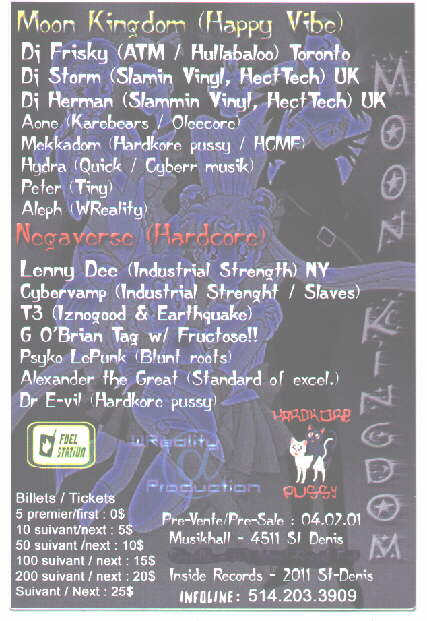 Moon Kingdom (Happy Vibe)
Dj Frisky (ATM / Hullabaloo) Toronto
Dj Storm (Slamin Vinyl, HectTech) UK
Dj Herman (Slammin Vinyl, HectTech) UK
Aone (Karebears / Oleecore)
Mekkadom (Hardkore pussy / HCMF)
Hydra (Quick / Cyberr musik)
Peter (Tiny)
Aleph (WReality)
Negaverse (Hardcore)
Lenny Dee (Industrial Strength) NY
Cybervamp (Industrial Strenght / Slaves)
T3 (Iznogood & Earthquake)
G O'Brian Tag w/ Fructose!!
Psyko LePunk (Blunt roots)
Alexander the Great (Standard of excel.)
Dr E-vil (Hardkore pussy)
MOON KINGDOM
FUEL
STATION
WReality
Production
HARDKORE
PUSSY
Billets / Tickets
5 premier/first : 0$
10 suivant/next : 5$
50 suivant /next : 10$
100 suivant / next : 15$
200 suivant / next : 20$
Suivant / Next : 25$
Pre-Vente/Pre-Sale : 04.02.01
Musikhall - 4511 St Denis
Inside Records - 2011 St-Denis
INFOLINE: 514.203.3909